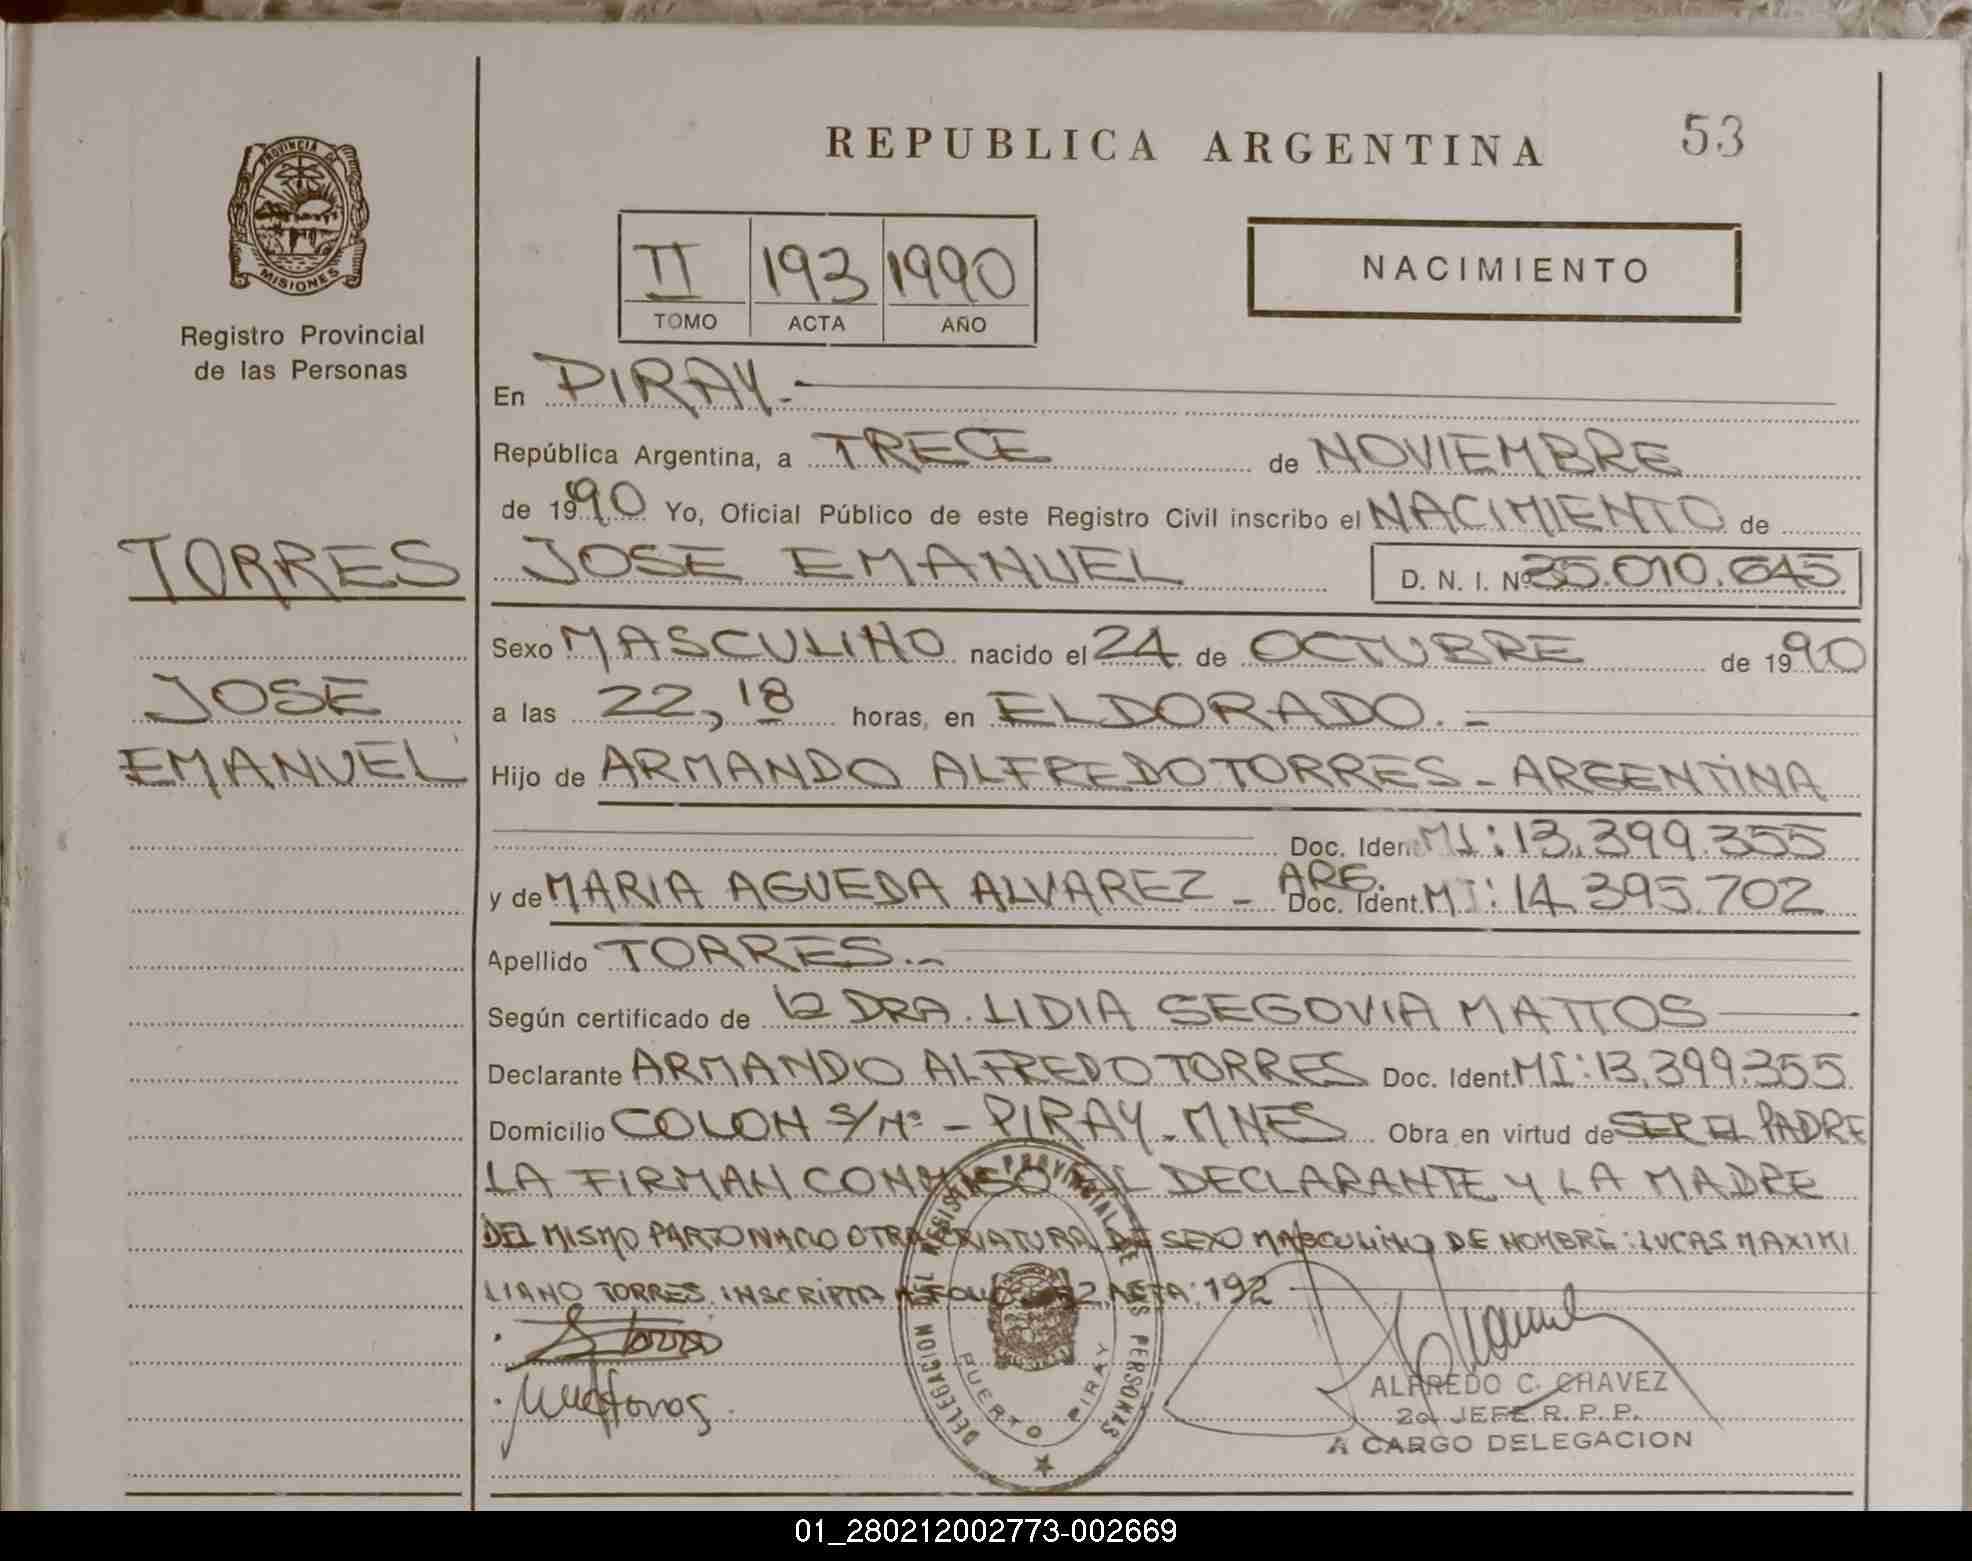 REPUBLICA ARGENTINA
53
PROVINCIA DE
MISIONES
Registro Provincial
de las Personas
II 193 1990
TOMO ACTA AÑO
NACIMIENTO
En PIRAY.-
República Argentina, a TRECE de NOVIEMBRE
de 1990 Yo, Oficial Público de este Registro Civil inscribo el NACIMIENTO de
TORRES
JOSE EMANUEL D. N. I. Nº 35.010.645
Sexo MASCULINO nacido el 24 de OCTUBRE de 1990
JOSE
a las 22,18 horas, en ELDORADO.-
EMANUEL
Hijo de ARMANDO ALFREDO TORRES - ARGENTINA
Doc. Ident. MI: 13.399.355
y de MARIA AGUEDA ALVAREZ - ARG. Doc. Ident. MI: 14.395.702
Apellido TORRES.-
Según certificado de la DRA. LIDIA SEGOVIA MATTOS
Declarante ARMANDO ALFREDO TORRES Doc. Ident. MI: 13.399.355
Domicilio COLON S/Nº - PIRAY - MNES Obra en virtud de SER EL PADRE
LA FIRMAN CONMIGO EL DECLARANTE Y LA MADRE
DEL MISMO PARTO NACIO OTRA CRIATURA DE SEXO MASCULINO DE NOMBRE: LUCAS MAXIMI
LIANO TORRES. INSCRIPTA ACTA: 192
REGISTRO PROVINCIAL DE LAS PERSONAS
DELEGACION
PUERTO PIRAY
ALFREDO C. CHAVEZ
2do JEFE R. P. P.
A CARGO DELEGACION
01_280212002773-002669